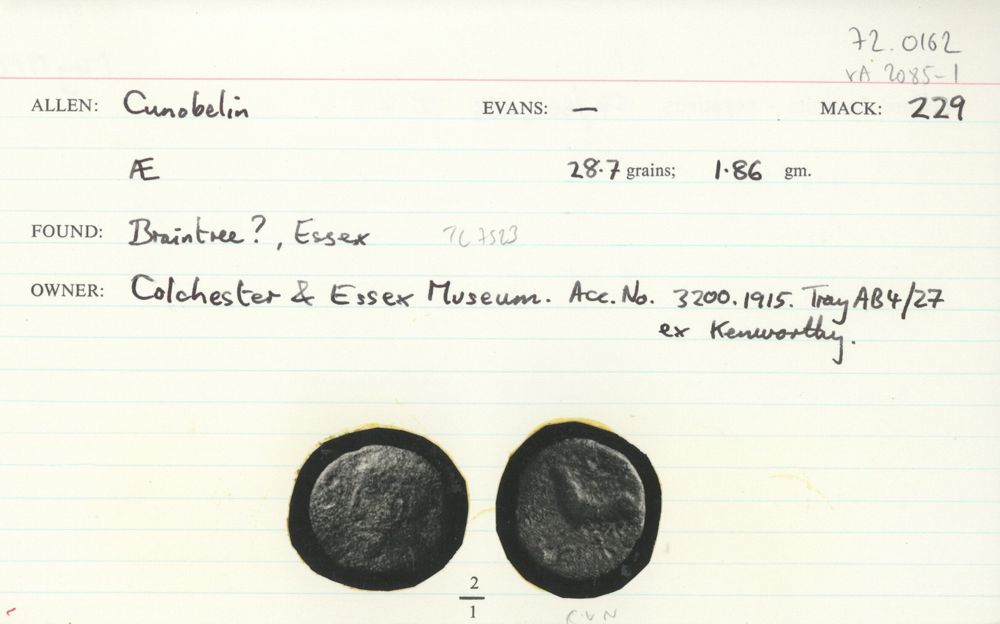 72.0162
VA 2085-1
ALLEN: Cunobelin EVANS: — MACK: 229
Æ 28.7 grains; 1.86 gm.
FOUND: Braintree?, Essex TL 7523
OWNER: Colchester & Essex Museum. Acc. No. 3200.1915. Tray AB4/27
ex Kenworthy.
2
1
CVN